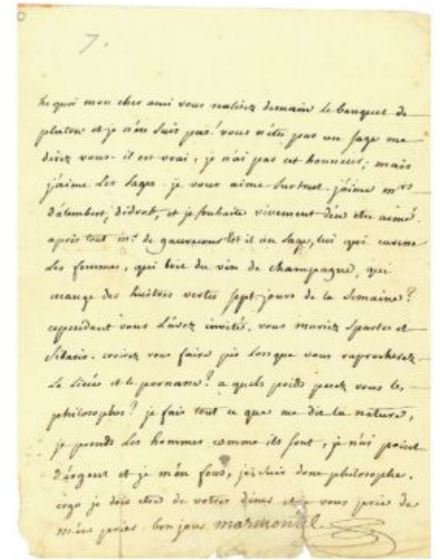 7.
quoi mon cher ami vous réalisez demain le banquet de
platon et je n'en suis pas! vous n'êtes pas un sage me
direz vous. il est vrai, je n'ai pas cet honneur; mais
j'aime les sages. je vous aime surtout. j'aime mrs
d'alembert, didrot, et je souhaite vivement d'en être aimé.
après tout mr. de gauxecour est il un sage, lui qui
les femmes, qui boit du vin de champagne, qui
mange des huitres vertes sept jours de la semaine?
cependant vous l'avez invité. vous mariez Sparte et
Sibaris. croirez vous faire pis lorsque vous raprocherez
le licée et le parnasse? a quels poids pesez vous les
philosophes? je fais tout ce que me dit la nature,
je prends les hommes comme ils sont, je n'ai point
d'argent et je m'en fous, je suis donc philosophe.
ergo je dois etre de votre diner et je vous prie de
m'en prier. bon jour. marmontel